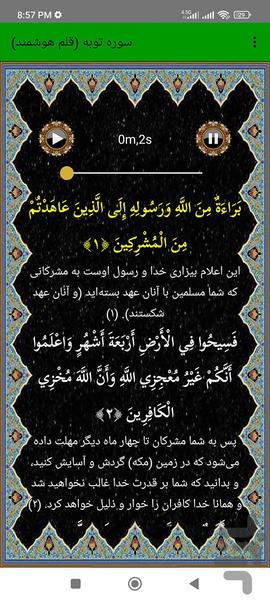 8:57 PM
سوره توبه (قلم هوشمند)
0m,2s
بَرَاءَةٌ مِنَ اللَّهِ وَرَسُولِهِ إِلَى الَّذِينَ عَاهَدْتُمْ
مِنَ الْمُشْرِكِينَ ﴿۱﴾
این اعلام بیزاری خدا و رسول اوست به مشرکانی
که شما مسلمین با آنان عهد بسته‌اید (و آنان عهد
شکستند). (۱)
فَسِيحُوا فِي الْأَرْضِ أَرْبَعَةَ أَشْهُرٍ وَاعْلَمُوا
أَنَّكُمْ غَيْرُ مُعْجِزِي اللَّهِ وَأَنَّ اللَّهَ مُخْزِي
الْكَافِرِينَ ﴿۲﴾
پس به شما مشرکان تا چهار ماه دیگر مهلت داده
می‌شود که در زمین (مکه) گردش و آسایش کنید،
و بدانید که شما بر قدرت خدا غالب نخواهید شد
و همانا خدا کافران را خوار و ذلیل خواهد کرد. (۲)